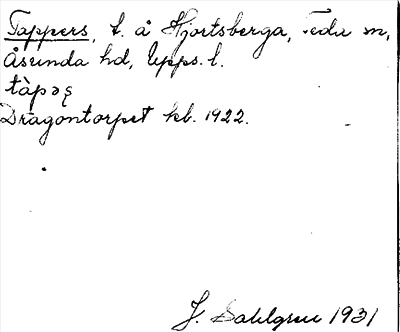 Tappers, t. å Hjortsberga, Tedu sn,
Åsunda hd, Upps. l.
tàpəʂ
Dragontorpet kb. 1922.
J. Sahlgren 1931